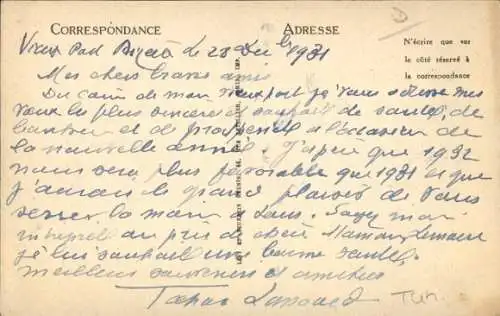 CORRESPONDANCE
ADRESSE
N'écrire que sur
le côté réservé à
la correspondance
Vieux Port Bizerte le 28 Déc 1931
Mes chers braves amis
Du coin de mon vieux port je vous adresse mes
vœux les plus sincères souhait de santé, de
bonheur et de prospérité à l'occasion de
la nouvelle année. J'espère que 1932
nous sera plus favorable que 1931 et que
j'aurai le grand plaisir de vous
serrer la main à tous. Soyez mon
interprète au près de chère Maman
je lui souhaite une bonne santé.
meilleurs souvenirs et amitiés
Tahar
Tun.